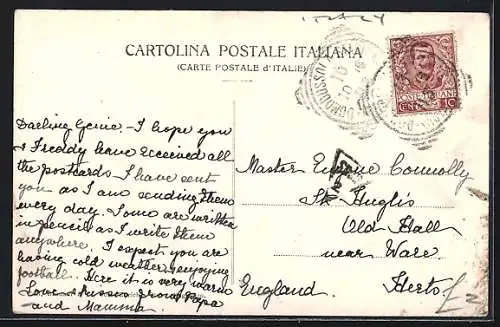 ITALY
CARTOLINA POSTALE ITALIANA
(CARTE POSTALE d'ITALIE)
POSTE ITALIANE
CENT. 10
Darling Genie - I hope you
& Freddy have received all
the postcards I have sent
you as I am sending them
every day. Some are written
in pencil as I write them
anywhere. I expect you are
having cold weather, enjoying
football. Here it is very warm
Love & kisses from Papa
and Mamma.
Master Eugene Connolly
St Hugh's
Old Hall
near Ware
Herts
England